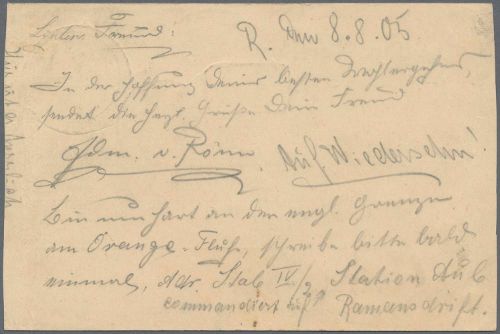 R. den 8.8.05
Lieber Freund!
In der Hoffnung Deines besten Wohlergehens,
sendet die herzl. Grüße Dein Freund
Edm. v. Rönn. Auf Wiedersehn!
Bin nun hart an der engl. Grenze
am Orange-Fluße, schreibe bitte bald
einmal, Adr. Stab IV/2 Station Aub
commandiert auf Ramansdrift.